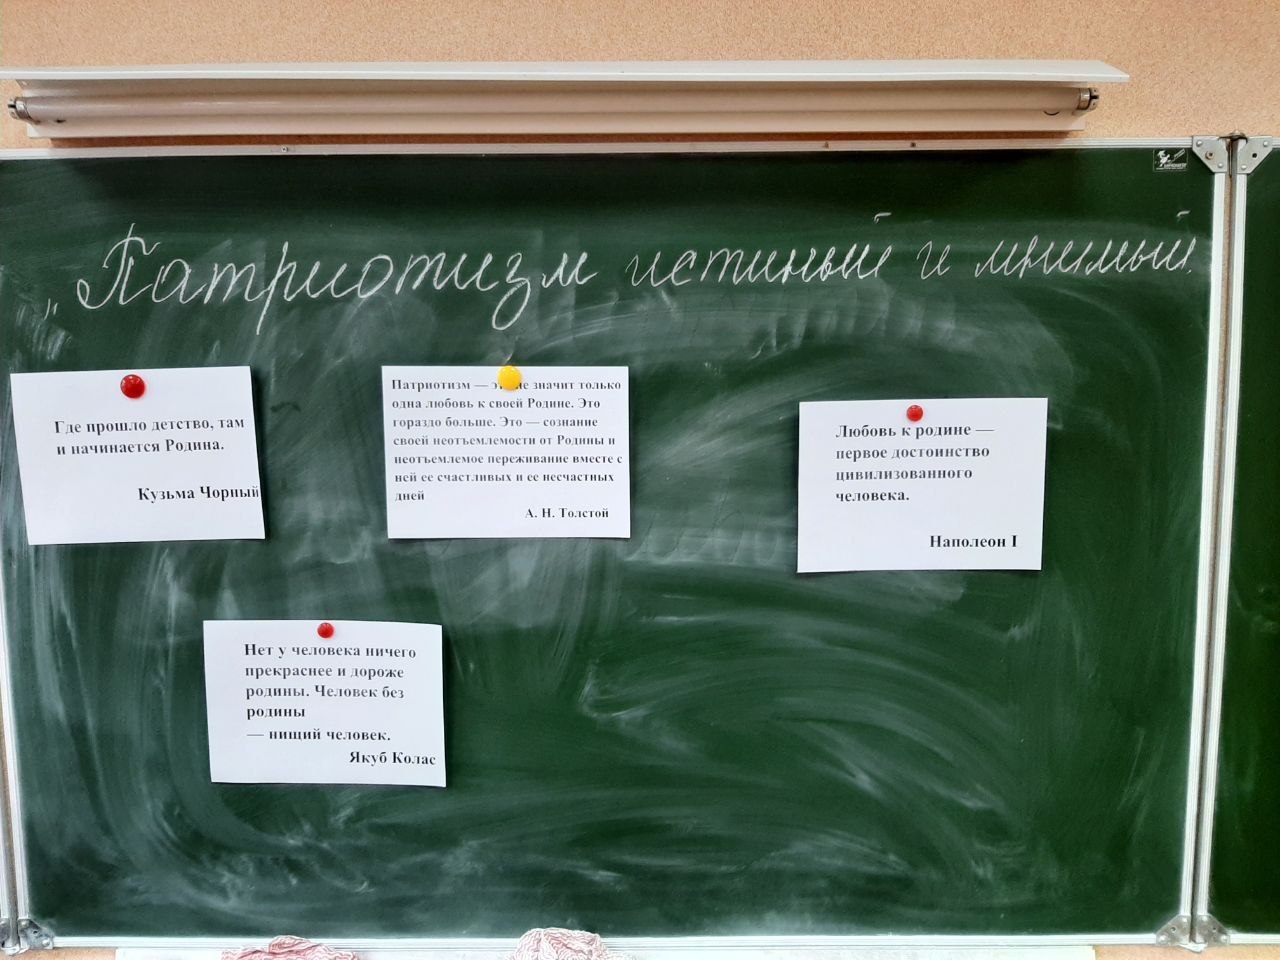 „Патриотизм истиный и мнимый"
Где прошло детство, там
и начинается Родина.
Кузьма Чорный
Патриотизм — это не значит только
одна любовь к своей Родине. Это
гораздо больше. Это — сознание
своей неотъемлемости от Родины и
неотъемлемое переживание вместе с
ней ее счастливых и ее несчастных
дней
А. Н. Толстой
Любовь к родине —
первое достоинство
цивилизованного
человека.
Наполеон I
Нет у человека ничего
прекраснее и дороже
родины. Человек без
родины
— нищий человек.
Якуб Колас